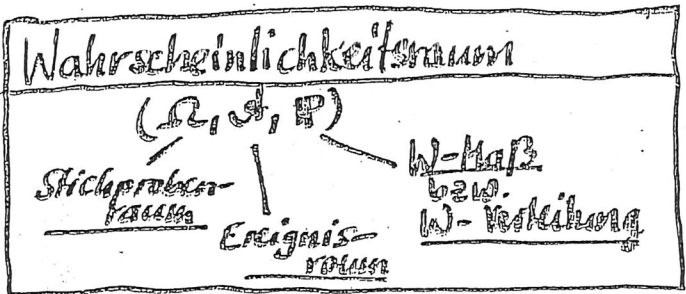 Wahrscheinlichkeitsraum
(Ω, 𝒜, ℙ)
Stichproben-
raum
Ereignis-
raum
W-Maß
bzw.
W-Verteilung